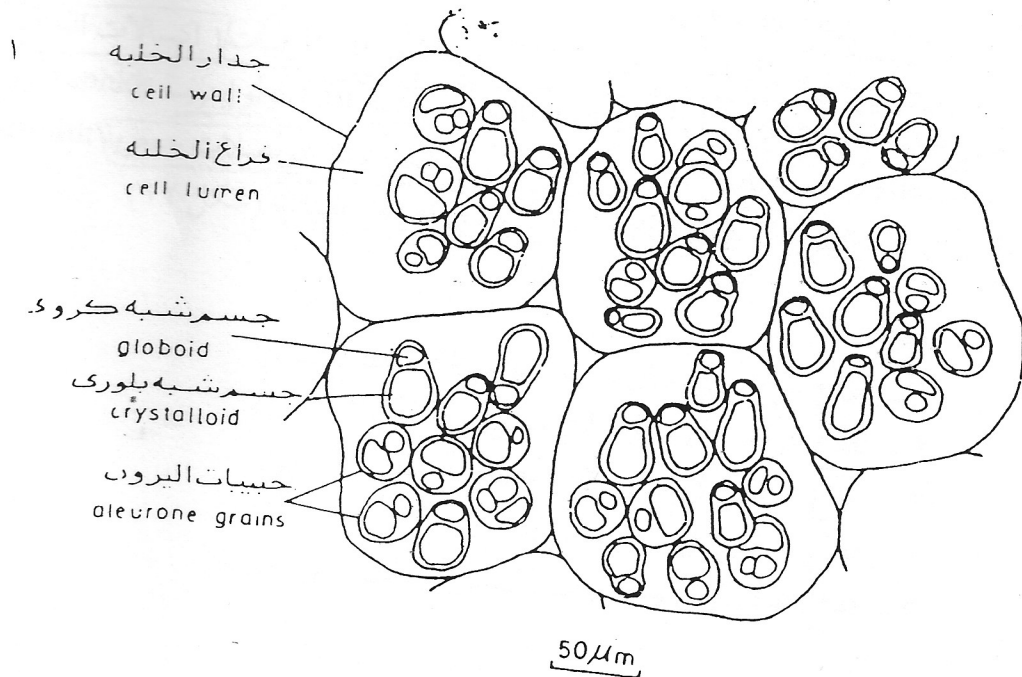 ١
جدار الخليه
cell wall
فراغ الخليه
cell lumen
جسم شبه كروى
globoid
جسم شبه بلورى
crystalloid
حبيبات اليرون
aleurone grains
50μm